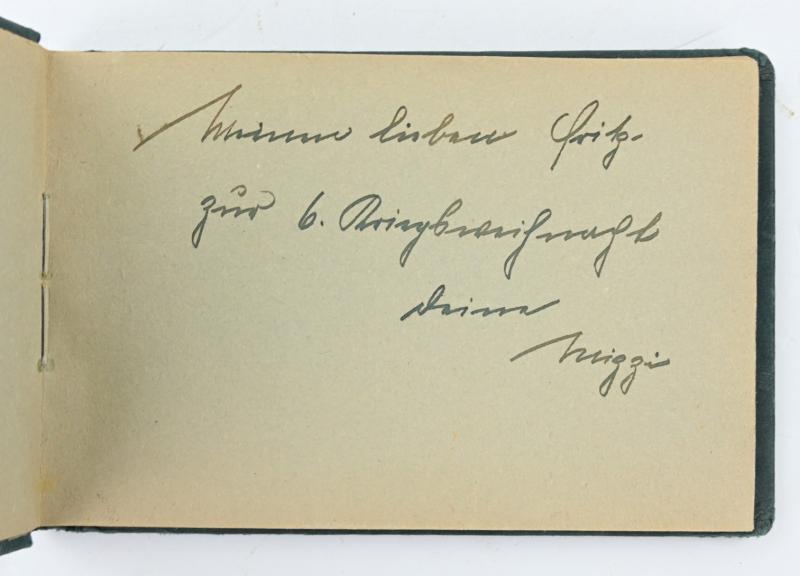 Meinem lieben Fritz.
zur 6. Kriegsweihnacht
Deine
Mizzi